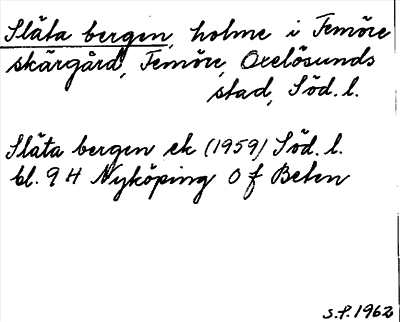 Släta bergen, holme i Femöre
skärgård, Femöre, Oxelösunds
stad, Söd. l.
Släta bergen ek (1959) Söd. l.
bl. 9 H Nyköping O f Beten
S.P. 1962